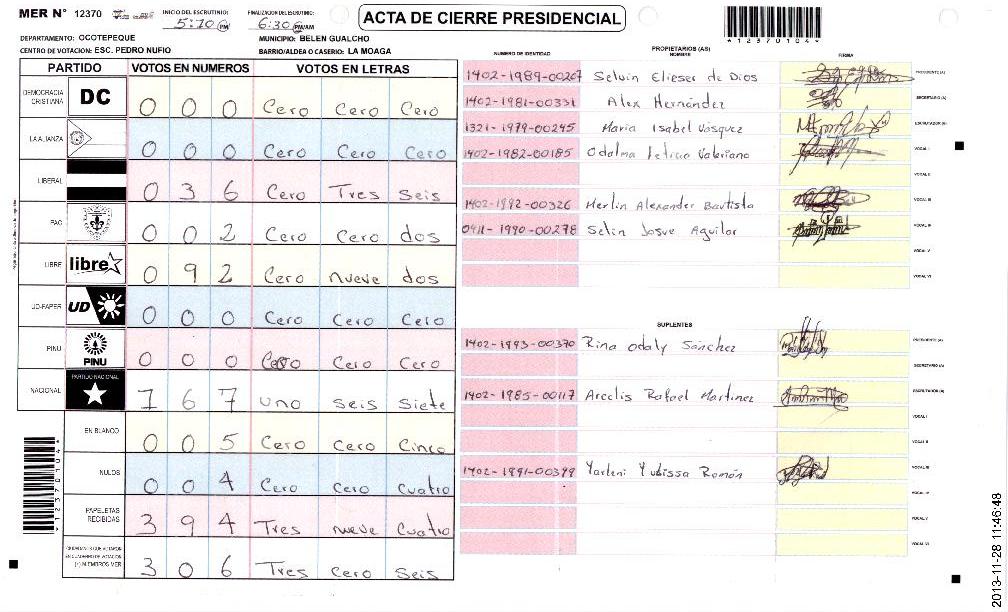 MER N° 12370
INICIO DE ESCRUTINIO: 5:10 PM
FINALIZACION DE ESCRUTINIO: 6:30 PM/AM
ACTA DE CIERRE PRESIDENCIAL
*12370104*
DEPARTAMENTO: OCOTEPEQUE
MUNICIPIO: BELEN GUALCHO
CENTRO DE VOTACION: ESC. PEDRO NUFIO
BARRIO/ALDEA O CASERIO: LA MOAGA
PARTIDO VOTOS EN NUMEROS VOTOS EN LETRAS
DEMOCRACIA CRISTIANA DC 0 0 0 Cero Cero Cero
LA ALIANZA 0 0 0 Cero Cero Cero
LIBERAL 0 3 6 Cero Tres Seis
PAC 0 0 2 Cero Cero dos
LIBRE libre 0 9 2 Cero nueve dos
UD-FAPER UD 0 0 0 Cero Cero Cero
PINU PINU 0 0 0 Cero Cero Cero
NACIONAL PARTIDO NACIONAL 1 6 7 uno seis siete
EN BLANCO 0 0 5 Cero Cero Cinco
NULOS 0 0 4 Cero Cero Cuatro
PAPELETAS RECIBIDAS 3 9 4 Tres nueve Cuatro
CIUDADANOS QUE VOTARON EN CUADERNO DE VOTACION (+) MIEMBROS MER 3 0 6 Tres Cero Seis
*12370104*
PROPIETARIOS (AS)
NUMERO DE IDENTIDAD NOMBRE FIRMA
1402-1989-00267 Selvin Elieser de Dios PRESIDENTE (A)
1402-1981-00331 Alex Hernández SECRETARIO (A)
1321-1979-00245 Maria Isabel Vasquez ESCRUTADOR (A)
1402-1982-00185 Odalma Leticia Valeriano VOCAL I
VOCAL II
1402-1992-00326 Merlin Alexander Bautista VOCAL III
0411-1990-00278 Selin Josue Aguilar VOCAL IV
VOCAL V
VOCAL VI
SUPLENTES
1402-1993-00370 Rina Odaly Sánchez PRESIDENTE (A)
SECRETARIO (A)
1402-1985-00117 Arcelis Rafael Martinez ESCRUTADOR (A)
VOCAL I
VOCAL II
1402-1991-00399 Yarleni Yubissa Román VOCAL III
VOCAL IV
VOCAL V
VOCAL VI
2013-11-28 11:46:48